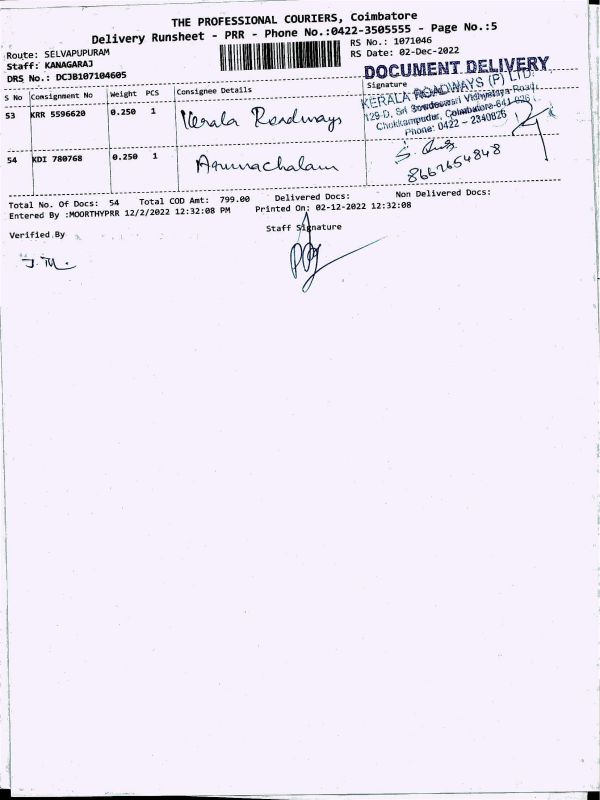 THE PROFESSIONAL COURIERS, Coimbatore
Delivery Runsheet - PRR - Phone No.:0422-3505555 - Page No.:5
Route: SELVAPUPURAM
RS No.: 1071046
Staff: KANAGARAJ
RS Date: 02-Dec-2022
DRS No.: DCJB107104605
DOCUMENT DELIVERY
S No Consignment No Weight PCS Consignee Details Signature
53 KRR 5596620 0.250 1 Kerala Roadways
KERALA ROADWAYS (P) LTD.
129-D, Sri Vidhyalaya Road,
Chokkampudur, Coimbatore-641
Phone: 0422 - 2340826
54 KDI 780768 0.250 1 Arunachalam
8667654848
Total No. Of Docs: 54 Total COD Amt: 799.00 Delivered Docs: Non Delivered Docs:
Entered By :MOORTHYPRR 12/2/2022 12:32:08 PM Printed On: 02-12-2022 12:32:08
Verified By
Staff Signature